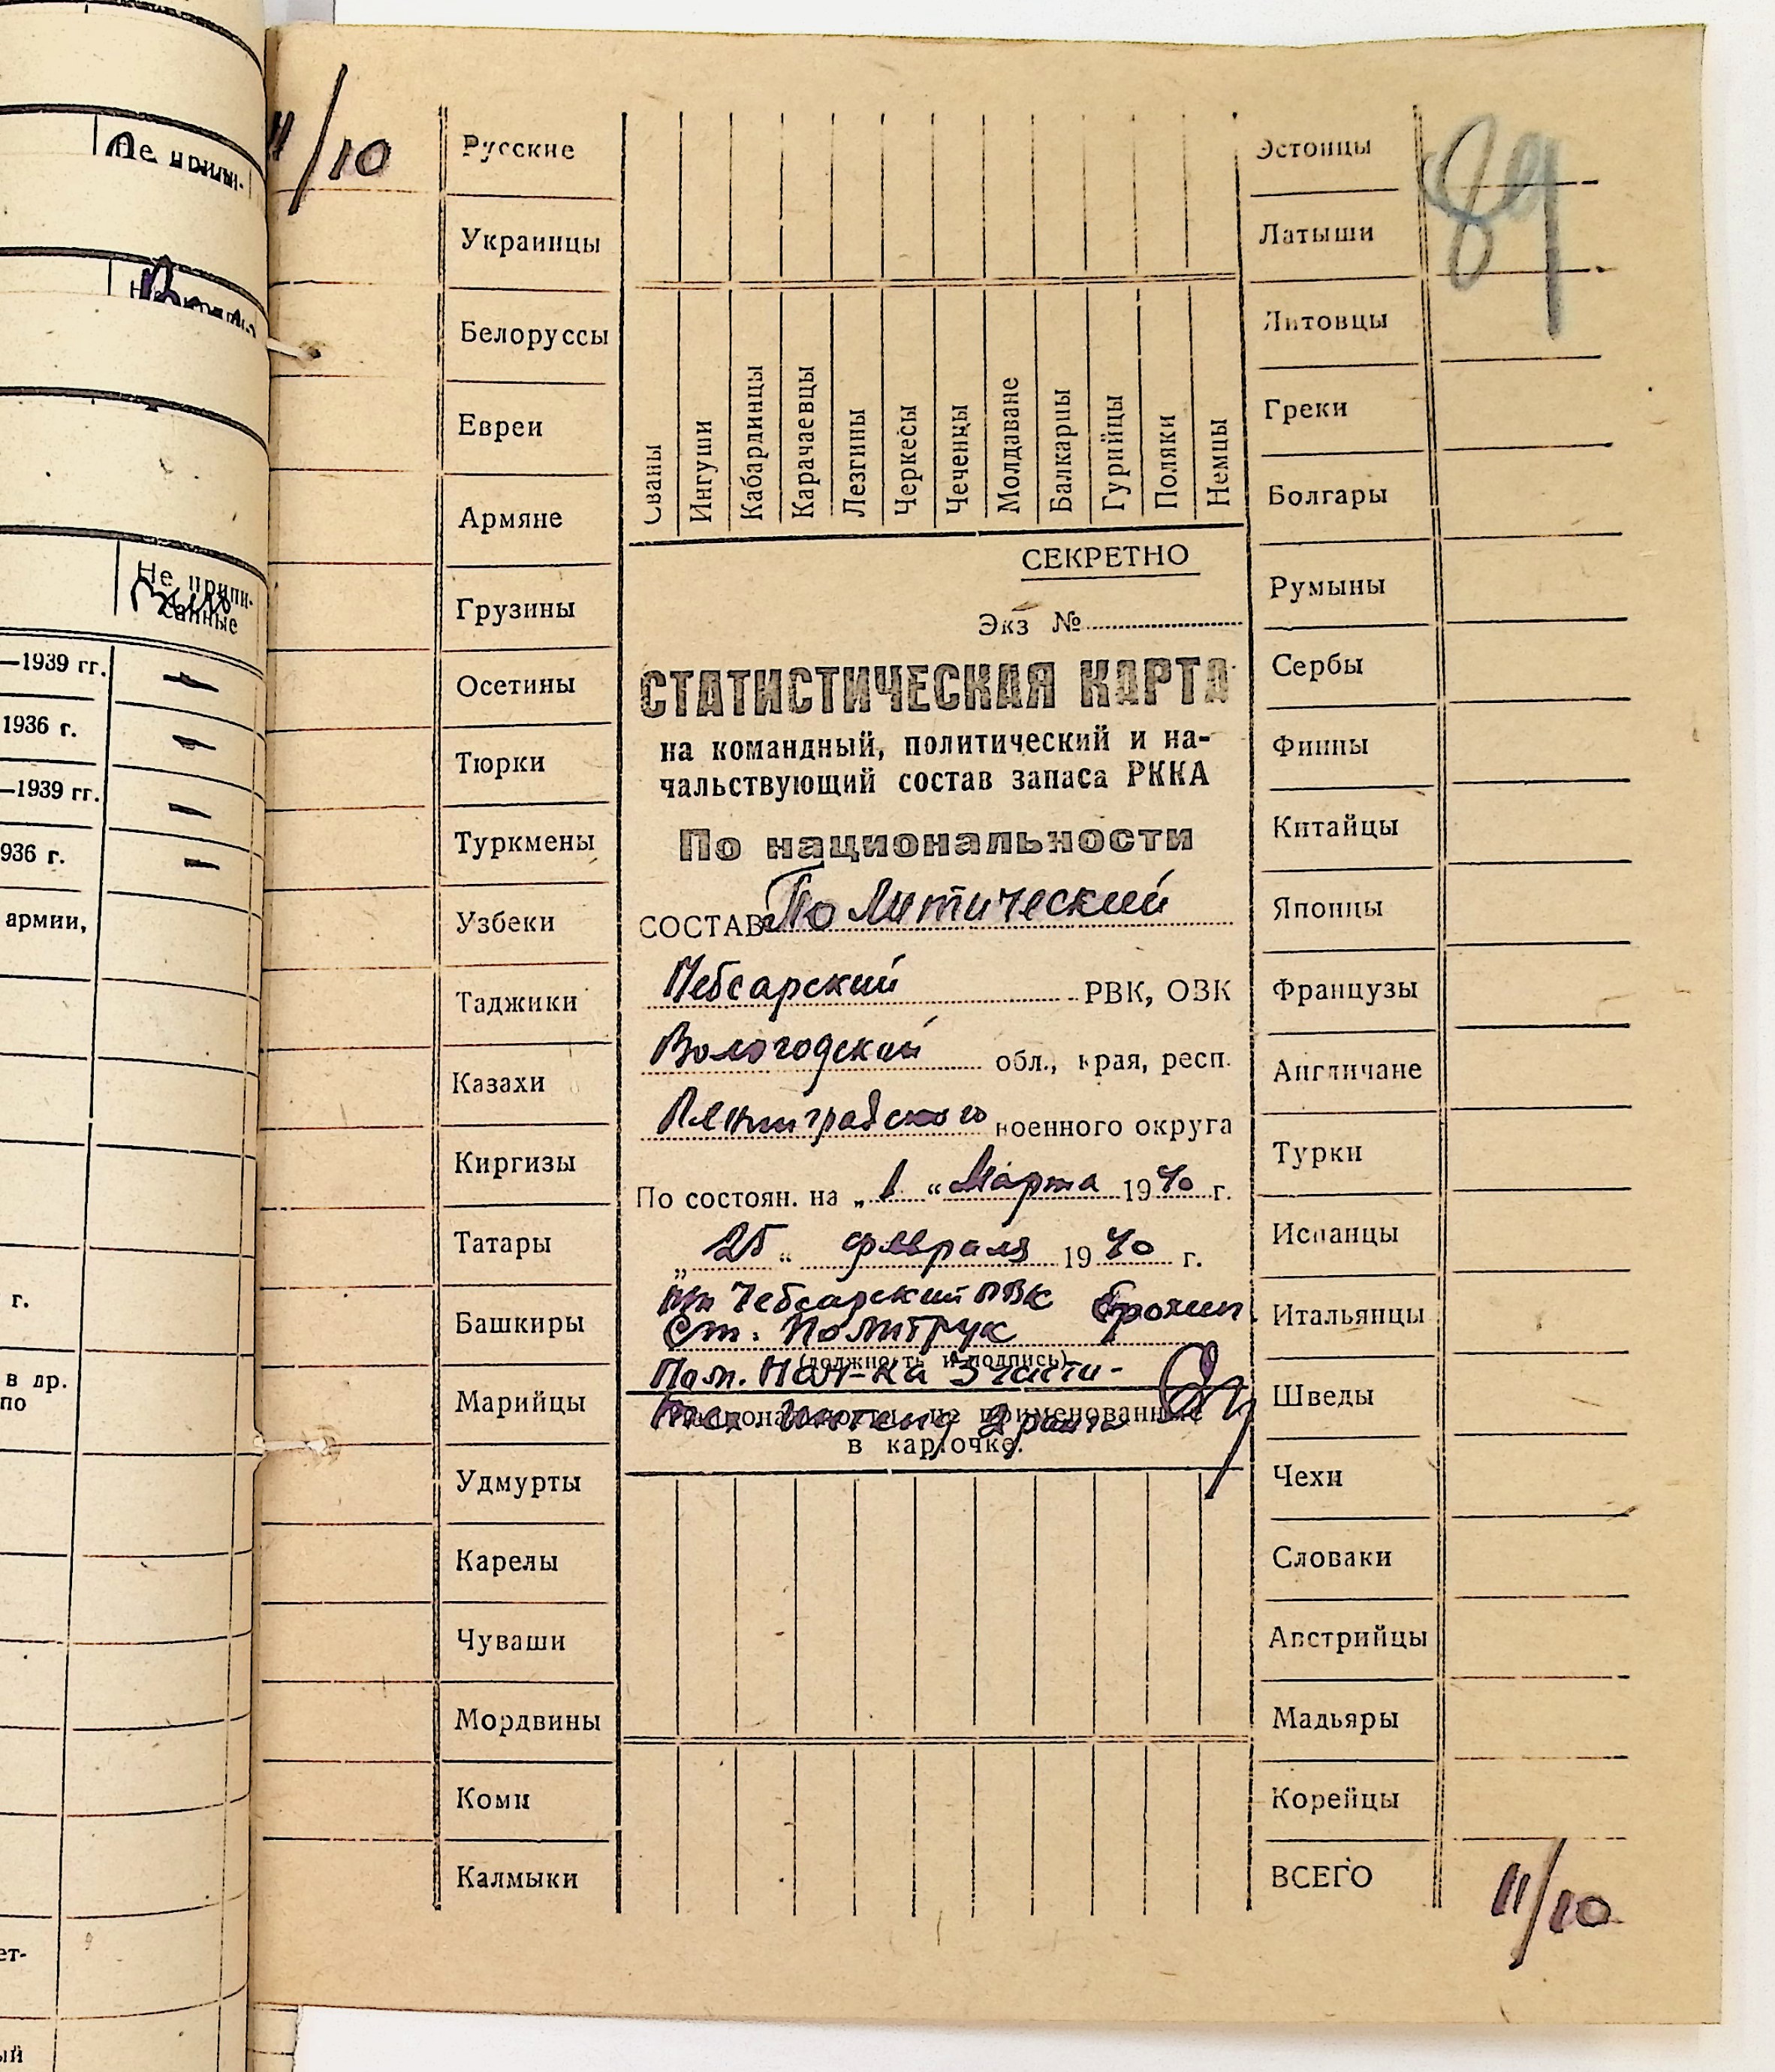 Не припи-
Не припи-
санные
—1939 гг.
1936 г.
—1939 гг.
936 г.
армии,
г.
в др.
по
ет-
ый
11/10
Русские
Украинцы
Белоруссы
Евреи
Армяне
Грузины
Осетины
Тюрки
Туркмены
Узбеки
Таджики
Казахи
Киргизы
Татары
Башкиры
Марийцы
Удмурты
Карелы
Чуваши
Мордвины
Коми
Калмыки
Сваны
Ингуши
Кабардинцы
Карачаевцы
Лезгины
Черкесы
Чеченцы
Молдаване
Балкарцы
Гурийцы
Поляки
Немцы
СЕКРЕТНО
Экз №
СТАТИСТИЧЕСКАЯ КАРТА
на командный, политический и на-
чальствующий состав запаса РККА
По национальности
СОСТАВ Политический
Чебсарский РВК, ОВК
Вологодский обл., края, респ.
Ленинградского военного округа
По состоян. на „1“ Марта 1940 г.
„25“ февраля 1940 г.
Чебсарский РВК Ерохин
Ст. Политрук
(должность и подпись)
Пом. Нач-ка 3 части-
Национальности, не поименованные
Тех. Интенд 2 ранга
в карточке.
Эстонцы
Латыши
Литовцы
Греки
Болгары
Румыны
Сербы
Финны
Китайцы
Японцы
Французы
Англичане
Турки
Испанцы
Итальянцы
Шведы
Чехи
Словаки
Австрийцы
Мадьяры
Корейцы
ВСЕГО
89
11/10